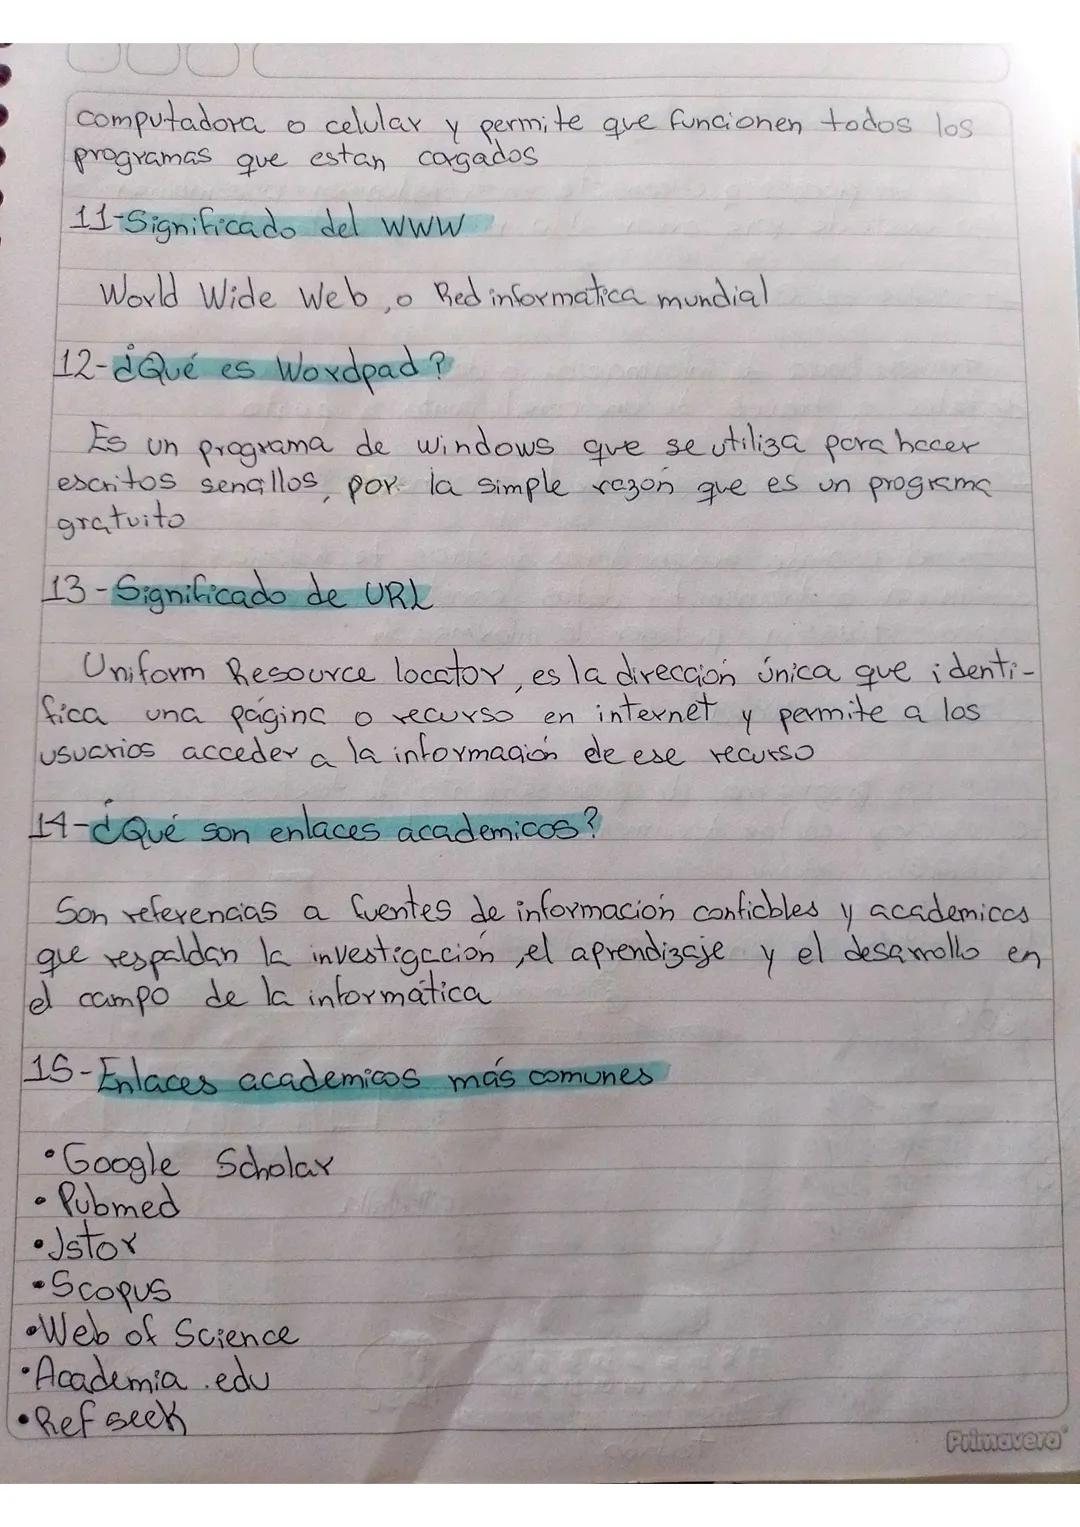 computadora o celular y permite que funcionen todos los
programas que estan cargados
11-Significado del WWW
World Wide Web, o Red informatica mundial
12-¿Qué es Wordpad?
Es un programa de windows que se utiliza para hacer
escritos sencillos, por la simple razón que es un programa
gratuito
13-Significado de URL
Uniform Resource locator, es la dirección única que identi-
fica una página o recurso en internet y permite a los
usuarios acceder a la información de ese recurso
14-¿Qué son enlaces academicos?
Son referencias a fuentes de información confiables y academicas
que respaldan la investigación, el aprendizaje y el desarrollo en
el campo de la informática
15-Enlaces academicos más comunes
•Google Scholar
•Pubmed
•Jstor
•Scopus
•Web of Science
•Academia.edu
•Ref seek
Primavera